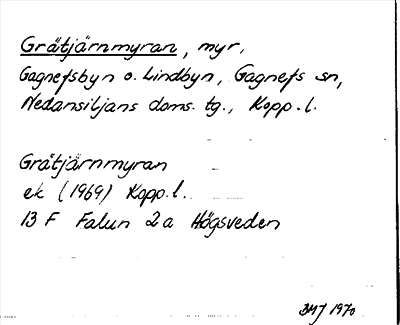 Gråtjärnmyran, myr,
Gagnefsbyn o. Lindbyn, Gagnefs sn,
Nedansiljans doms. tg., Kopp. l.
Gråtjärnmyran
ek (1969) Kopp. l.
13 F Falun 2 a Högsveden
BMJ 1970